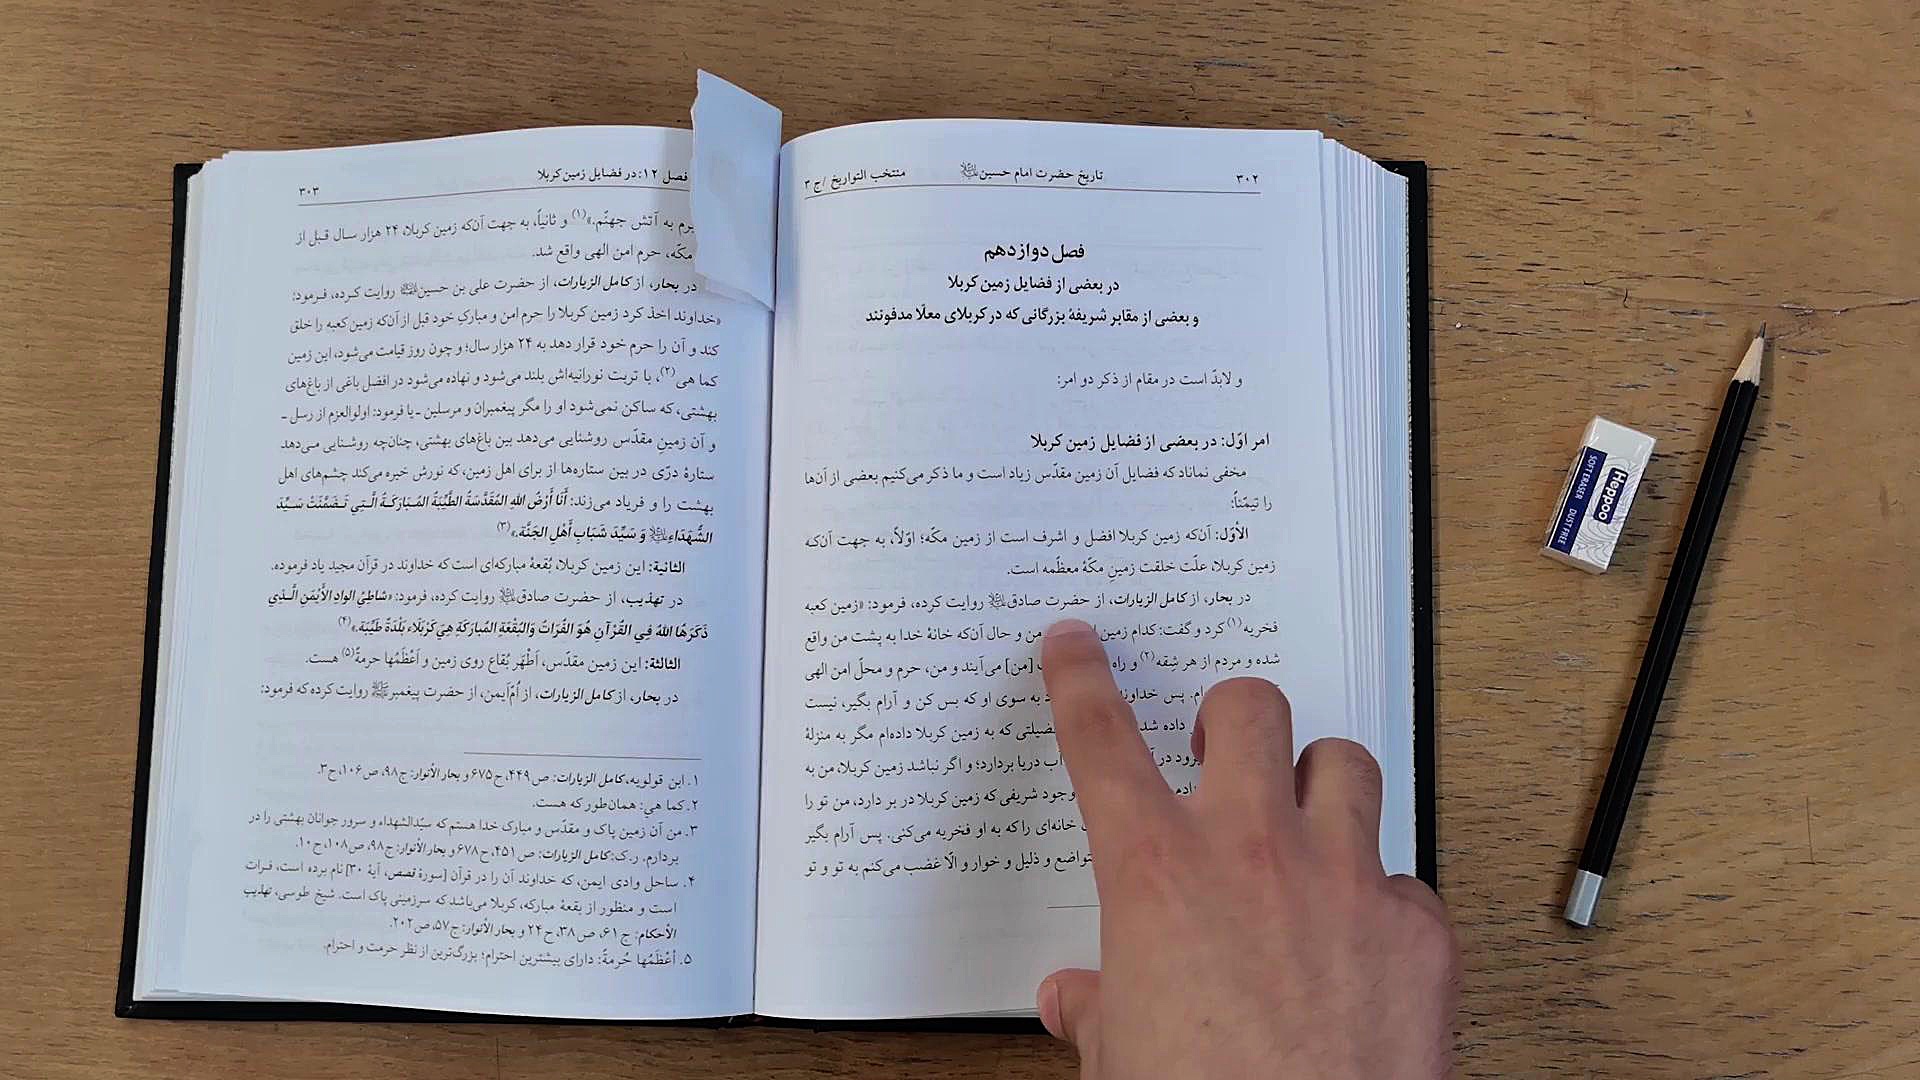 ۳۰۲
تاریخ حضرت امام حسین
منتخب التواریخ /ج ۳
فصل دوازدهم
در بعضی از فضایل زمین کربلا
و بعضی از مقابر شریفهٔ بزرگانی که در کربلای معلّا مدفونند
و لابدّ است در مقام از ذکر دو امر:
امر اوّل: در بعضی از فضایل زمین کربلا
مخفی نماناد که فضایل آن زمین مقدّس زیاد است و ما ذکر می‌کنیم بعضی از آن‌ها
را تیمّناً:
الأوّل: آن‌که زمین کربلا افضل و اشرف است از زمین مکّه؛ اوّلاً، به جهت آن‌که
زمین کربلا، علّت خلقت زمینِ مکّهٔ معظّمه است.
در بحار، از کامل الزیارات، از حضرت صادق روایت کرده، فرمود: «زمین کعبه
فخریه(۱) کرد و گفت: کدام زمین من و حال آن‌که خانهٔ خدا به پشت من واقع
شده و مردم از هر شِقه(۲) و راه [من] می‌آیند و من، حرم و محلّ امن الهی
پس خداوند به سوی او که بس کن و آرام بگیر، نیست
داده شد فضیلتی که به زمین کربلا داده‌ام مگر به منزلهٔ
در آب دریا بردارد؛ و اگر نباشد زمین کربلا، من به
وجود شریفی که زمین کربلا در بر دارد، من تو را
خانه‌ای را که به او فخریه می‌کنی. پس آرام بگیر
متواضع و ذلیل و خوار و الّا غضب می‌کنم به تو و تو
فصل ۱۲: در فضایل زمین کربلا
۳۰۳
به آتش جهنّم.»(۱) و ثانیاً، به جهت آن‌که زمین کربلا، ۲۴ هزار سال قبل از
مکّه، حرم امن الهی واقع شد.
در بحار، از کامل الزیارات، از حضرت علی بن حسین روایت کرده، فرمود:
«خداوند اخذ کرد زمین کربلا را حرم امن و مبارکِ خود قبل از آن‌که زمین کعبه را خلق
کند و آن را حرم خود قرار دهد به ۲۴ هزار سال؛ و چون روز قیامت می‌شود، این زمین
کما هی(۲)، با تربت نورانیه‌اش بلند می‌شود و نهاده می‌شود در افضل باغی از باغ‌های
بهشتی، که ساکن نمی‌شود او را مگر پیغمبران و مرسلین ـ یا فرمود: اولوالعزم از رسل ـ
و آن زمینِ مقدّس روشنایی می‌دهد بین باغ‌های بهشتی، چنان‌چه روشنایی می‌دهد
ستارهٔ درّی در بین ستاره‌ها از برای اهل زمین، که نورش خیره می‌کند چشم‌های اهل
بهشت را و فریاد می‌زند: أَنَا أَرْضُ اللهِ المُقَدَّسَةُ الطَّیِّبَةُ المُبَارَکَةُ الَّتِي تَضَمَّنَتْ سَیِّدَ
الشُّهَدَاءِ وَ سَیِّدَ شَبَابِ أَهْلِ الجَنَّة.»(۳)
الثانیة: این زمین کربلا، بُقعهٔ مبارکه‌ای است که خداوند در قرآن مجید یاد فرموده.
در تهذیب، از حضرت صادق روایت کرده، فرمود: «شاطِئُ الوادِ الأَیْمَنِ الَّذِي
ذَکَرَهَا اللهُ فِي القُرْآنِ هُوَ الفُرَاتُ وَالبُقْعَةُ المُبَارَکَةِ هِيَ کَرْبَلَاءِ بَلْدَةٌ طَیِّبَة.»(۴)
الثالثة: این زمین مقدّس، اَطْهَر بُقاع روی زمین و اَعْظَمُها حرمةً(۵) هست.
در بحار، از کامل الزیارات، از اُمّ‌اَیمن، از حضرت پیغمبر روایت کرده که فرمود:
۱. ابن قولویه، کامل الزیارات: ص۴۴۹، ح۶۷۵ و بحار الأنوار: ج۹۸، ص۱۰۶، ح۳.
۲. کما هي: همان‌طور که هست.
۳. من آن زمین پاک و مقدّس و مبارک خدا هستم که سیّدالشهداء و سرور جوانان بهشتی را در
بردارم. ر.ک: کامل الزیارات: ص۴۵۱، ح۶۷۸ و بحار الأنوار: ج۹۸، ص۱۰۸، ح۱۰.
۴. ساحل وادی ایمن، که خداوند آن را در قرآن [سورهٔ قصص، آیهٔ ۳۰] نام برده است، فرات
است و منظور از بقعهٔ مبارکه، کربلا می‌باشد که سرزمینی پاک است. شیخ طوسی، تهذیب
الأحکام: ج۶، ص۳۸، ح۲۴ و بحار الأنوار: ج۵۷، ص۲۰۲.
۵. أعْظَمُها حُرمةً: دارای بیشترین احترام؛ بزرگ‌ترین از نظر حرمت و احترام.
Heppoo
SOFT ERASER
DUST FREE